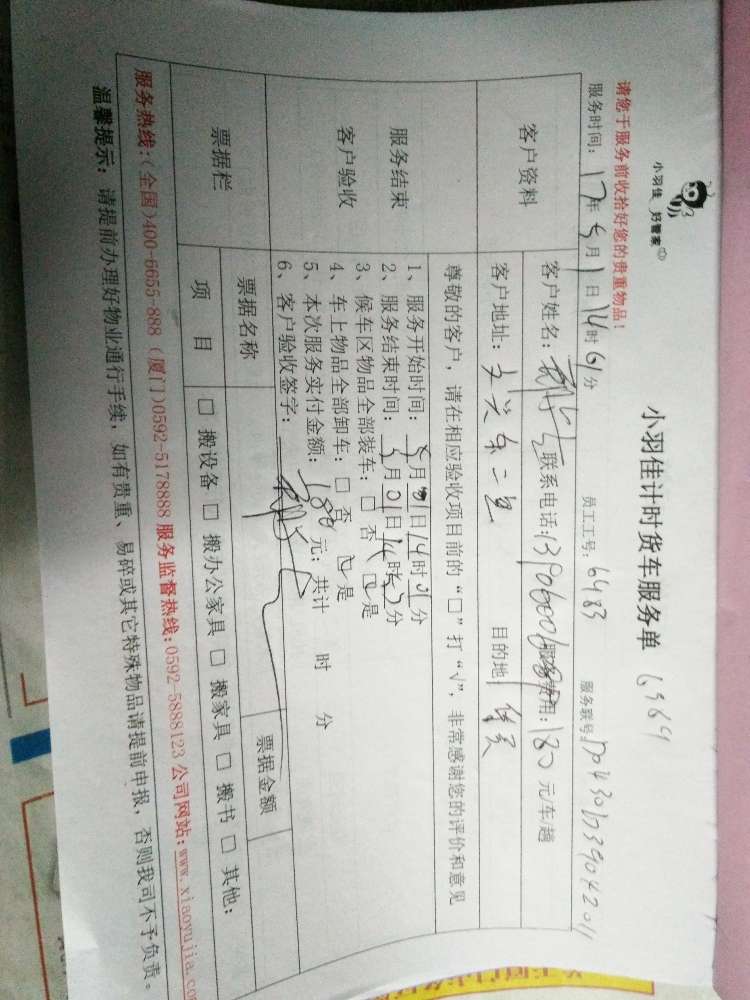 小羽佳 好管家
小羽佳计时货车服务单 6989
请您于服务前收拾好您的贵重物品!
服务时间: 17年5月1日14时01分 员工工号: 6483 服务联号:
客户资料
客户姓名: 联系电话: 服务费用: 180元/车/趟
客户地址: 目的地
尊敬的客户,请在相应验收项目前的“口”打“√”,非常感谢您的评价和意见
服务结束
客户验收
1、服务开始时间: 5月01日14时01分
2、服务结束时间: 5月01日14时50分
3、候车区物品全部装车: □ 否 ☑是
4、车上物品全部卸车: □ 否 ☑是
5、本次服务实付金额: 180元; 共计 时 分
6、客户验收签字:
票据栏
票据名称 票据金额
项 目 □ 搬设备 □ 搬办公家具 □ 搬家具 □ 搬书 □ 其他:
服务热线:(全国)400-6655-888 (厦门)0592-5178888 服务监督热线:0592-5888123 公司网站:www.xiaoyujia.co
温馨提示: 请提前办理好物业通行手续,如有贵重、易碎或其它特殊物品请提前申报,否则我司不予负责。